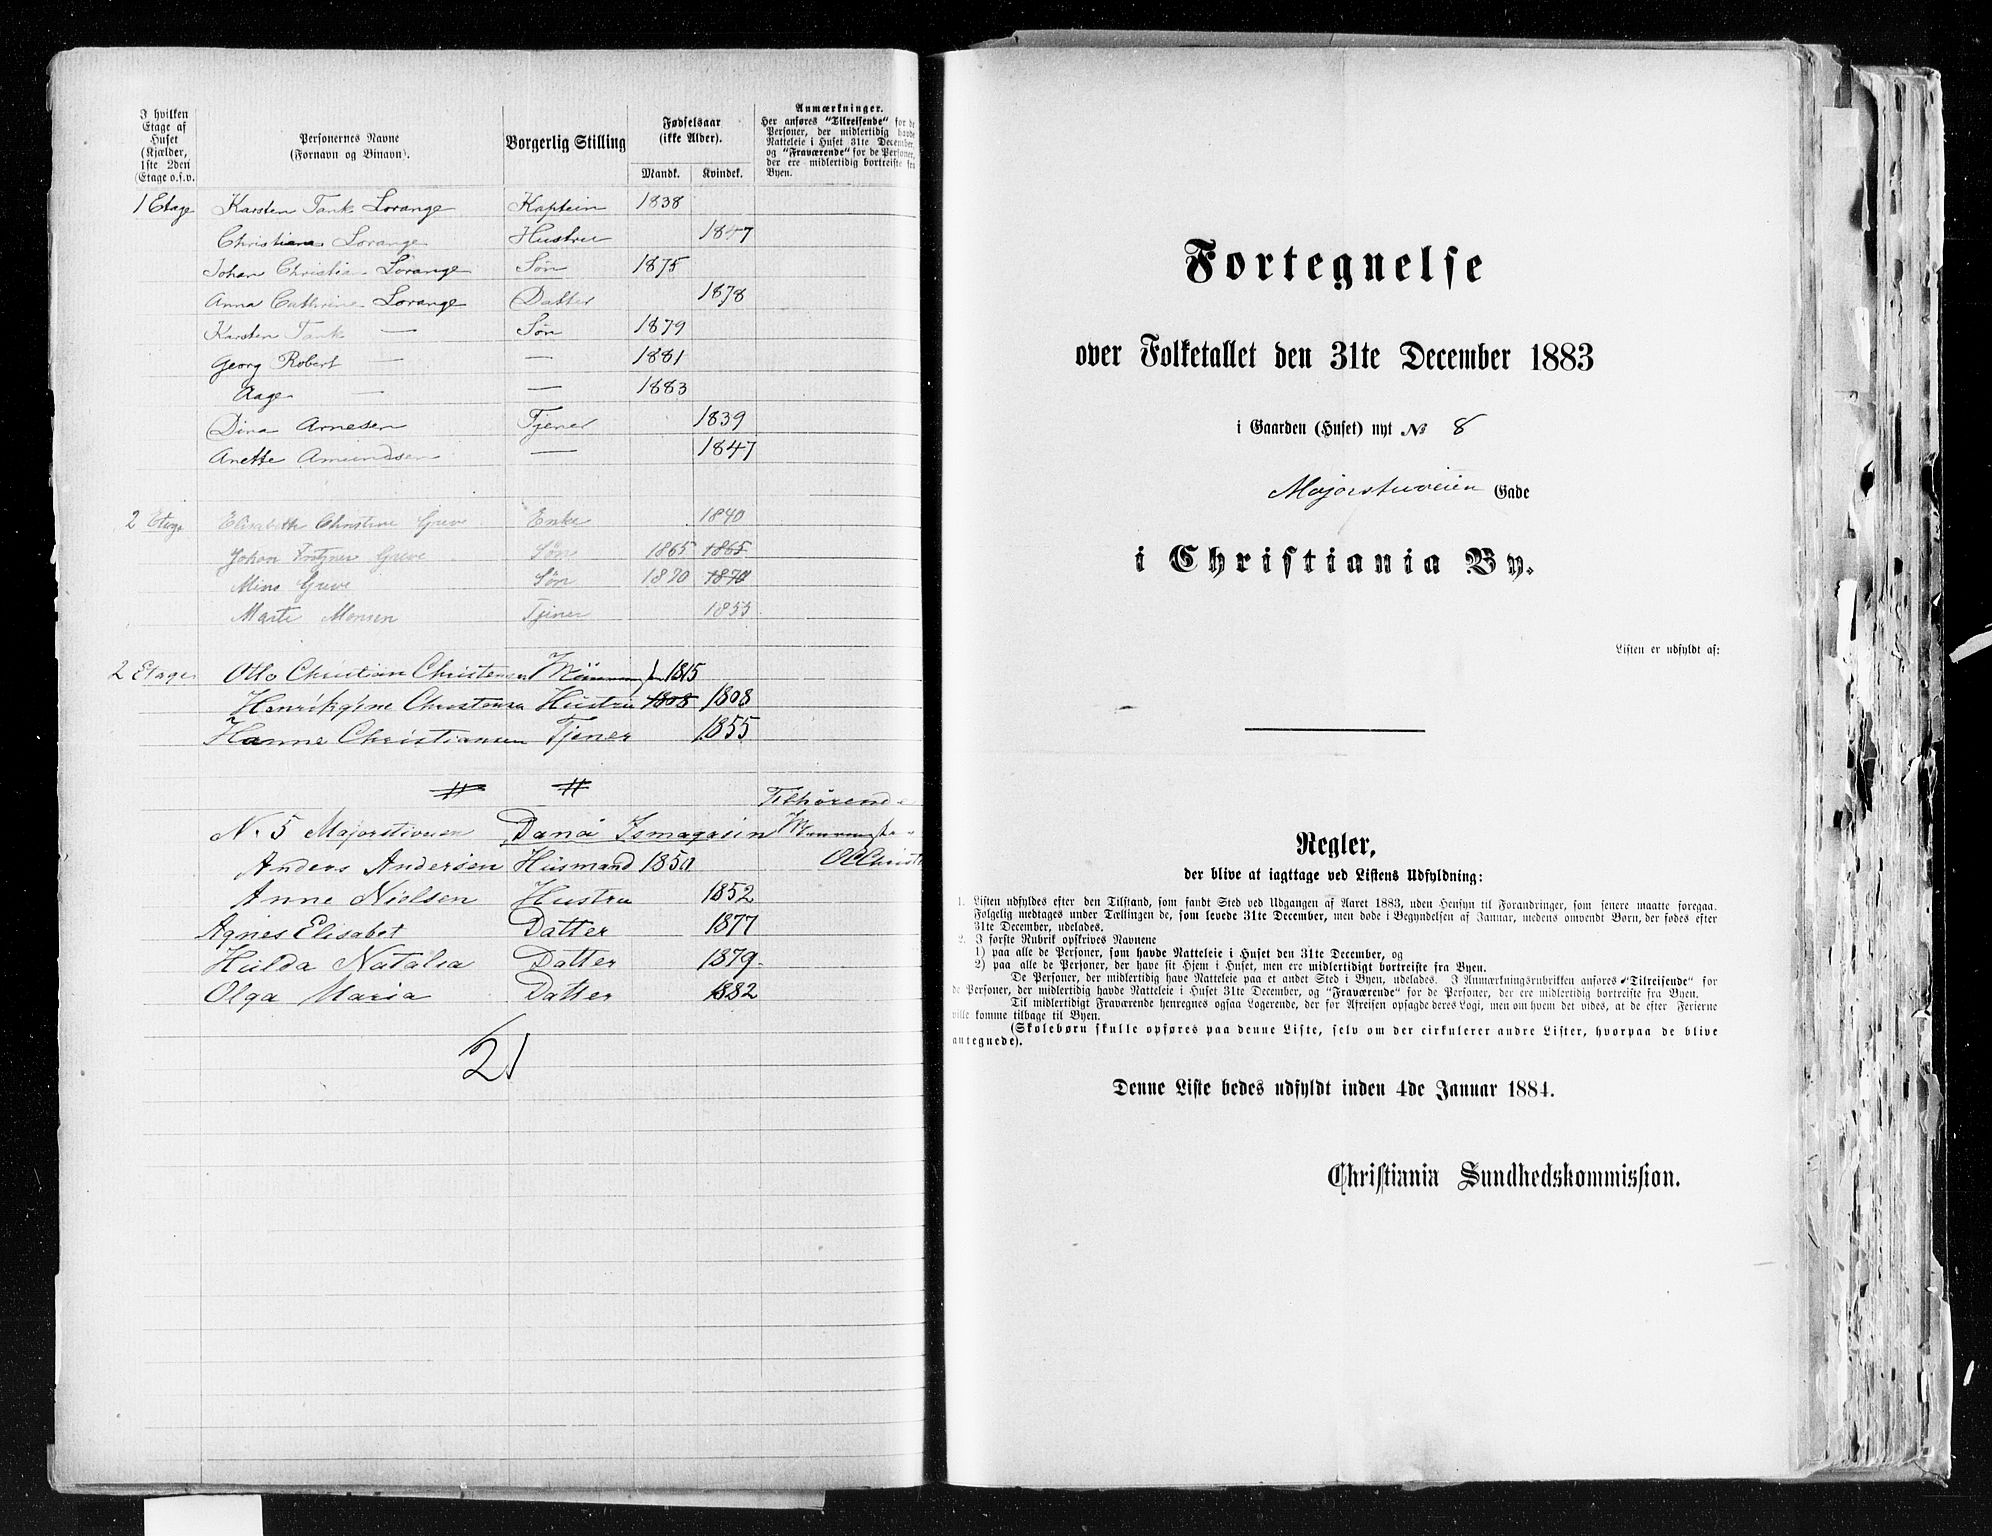 I hvilken
Etage af
Huset
(Kjælder,
1ste 2den
Etage o.s.v.
Personernes Navne
(Fornavn og Binavn).
Borgerlig Stilling
Fødselsaar
(ikke Alder).
Mandk. Kvindek.
Anmærkninger.
Her anføres "Tilreisende" for de
Personer, der midlertidig havde
Natteleie i Huset 31te December,
og "Fraværende" for de Personer,
der ere midlertidig bortreiste fra
Byen.
1 Etage Karsten Tank Lorange Kaptein 1838
Christiane Lorange Hustru 1847
Johan Christia Lorange Søn 1875
Anna Cathrine Lorange Datter 1878
Karsten Tank — Søn 1879
Georg Robert — — 1881
Aage — — 1883
Dina Arnesen Tjener 1839
Anette Amundsen — 1847
2 Etage Elisabeth Christine Greve Enke 1840
Johan Greve Søn 1865 1865
Greve Søn 1870 1870
Marte Monsen Tjener 1855
2 Etage Otto Christian Christensen 1815
Christensen Hustru 1808 1808
Hanne Christiansen Tjener 1855
Tilhørende
N. 5 Majorstuveien Ismagasin
Anders Andersen Husmand 1850
Anne Nielsen Hustru 1852
Agnes Elisabet Datter 1877
Hulda Natalia Datter 1879
Olga Maria Datter 1882
21
Fortegnelse
over Folketallet den 31te December 1883
i Gaarden (Huset) nyt № 8
Majorstuveien Gade
i Christiania By.
Listen er udfyldt af:
Regler,
der blive at iagttage ved Listens Udfyldning:
1. Listen udfyldes efter den Tilstand, som fandt Sted ved Udgangen af Aaret 1883, uden Hensyn til Forandringer, som senere maatte foregaa.
Følgelig medtages under Tællingen de, som levede 31te December, men døde i Begyndelsen af Januar, medens omvendt Børn, der fødes efter
31te December, udelades.
2. I første Rubrik opskrives Navnene
1) paa alle de Personer, som havde Natteleie i Huset den 31te December, og
2) paa alle de Personer, der have sit Hjem i Huset, men ere midlertidigt bortreiste fra Byen.
De Personer, der midlertidig have Natteleie paa et andet Sted i Byen, udelades. I Anmærkningsrubrikken anføres "Tilreisende" for
de Personer, der midlertidig havde Natteleie i Huset 31te December, og "Fraværende" for de Personer, der ere midlertidig bortreiste fra Byen.
Til midlertidigt Fraværende henregnes ogsaa Logerende, der før Afreisen opsagde deres Logi, men om hvem det vides, at de efter Ferierne
ville komme tilbage til Byen.
(Skolebørn skulle opføres paa denne Liste, selv om der cirkulerer andre Lister, hvorpaa de blive
antegnede).
Denne Liste bedes udfyldt inden 4de Januar 1884.
Christiania Sundhedskommission.